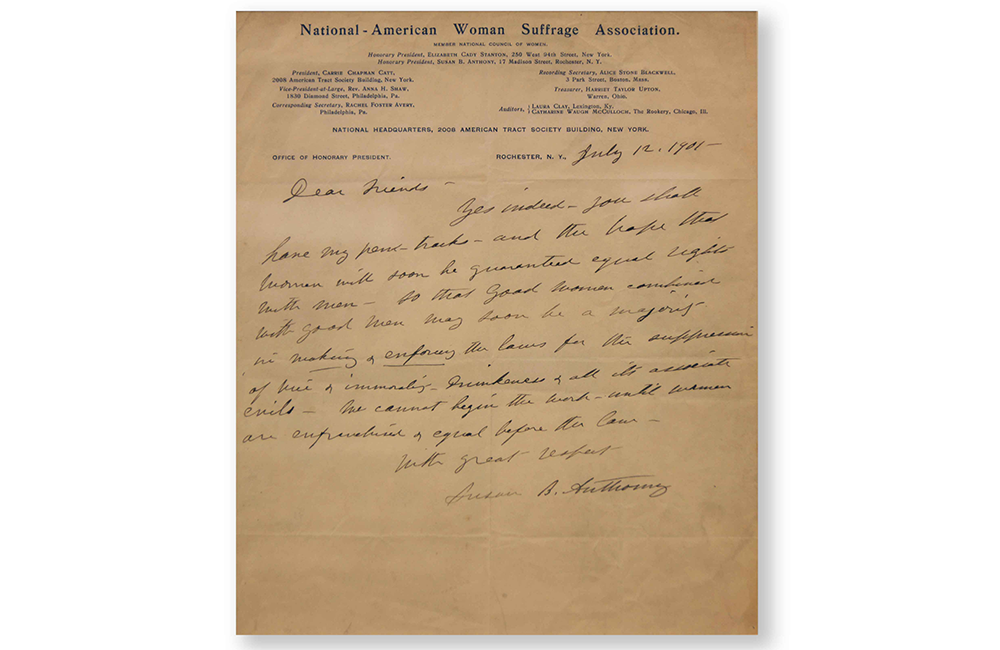 National-American Woman Suffrage Association.
MEMBER NATIONAL COUNCIL OF WOMEN.
Honorary President, ELIZABETH CADY STANTON, 250 West 94th Street, New York.
Honorary President, SUSAN B. ANTHONY, 17 Madison Street, Rochester, N. Y.
President, CARRIE CHAPMAN CATT,
2008 American Tract Society Building, New York.
Vice-President-at-Large, REV. ANNA H. SHAW,
1830 Diamond Street, Philadelphia, Pa.
Corresponding Secretary, RACHEL FOSTER AVERY,
Philadelphia, Pa.
Recording Secretary, ALICE STONE BLACKWELL,
3 Park Street, Boston, Mass.
Treasurer, HARRIET TAYLOR UPTON,
Warren, Ohio.
Auditors, { LAURA CLAY, Lexington, Ky.
{ CATHARINE WAUGH MCCULLOCH, The Rookery, Chicago, Ill.
NATIONAL HEADQUARTERS, 2008 AMERICAN TRACT SOCIETY BUILDING, NEW YORK.
OFFICE OF HONORARY PRESIDENT.
ROCHESTER, N. Y., July 12, 1901-
Dear Friends -
Yes indeed - you shall
have my pen-tracks - and the hope that
women will soon be guaranteed equal rights
with men - so that good women combined
with good men may soon be a majority
in making & enforcing the laws for the suppression
of vice & immorality - Drunkeness & all its associate
evils - We cannot begin the work - until women
are enfranchised & equal before the law -
With great respect
Susan B. Anthony